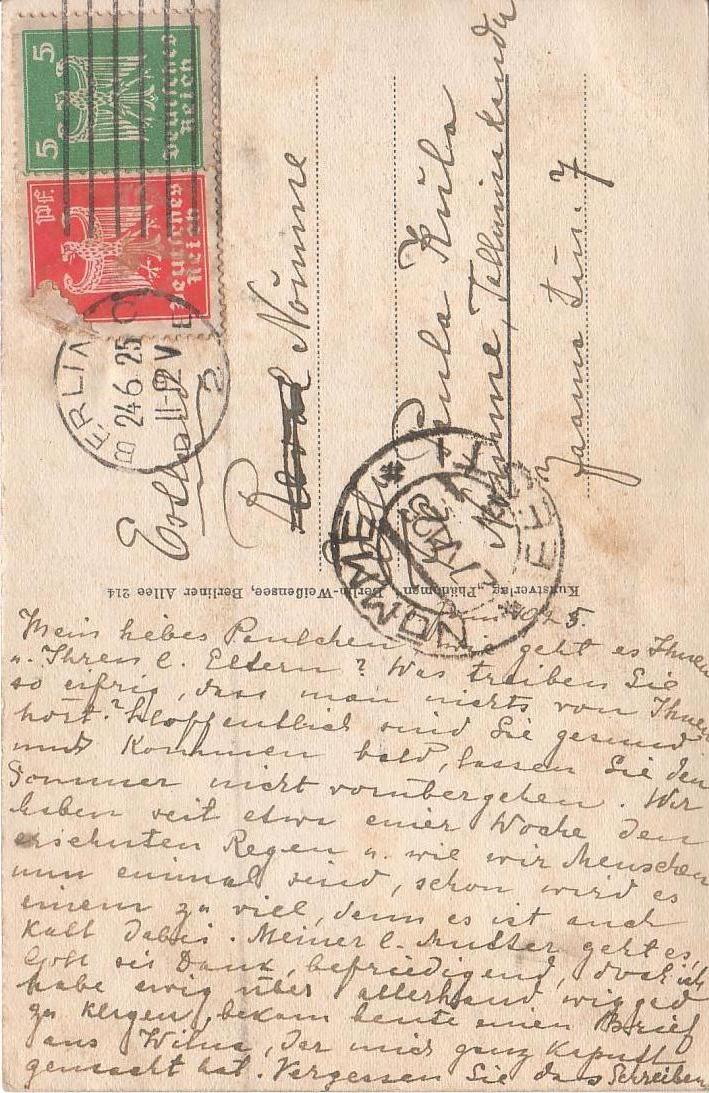 5
5
Deutsches
Reich
Pf.
Deutsches
Reich
BERLIN
24.6.25
11-12 V
2
Estland
Nõmme
Paula Küla
Nõmme, Tallinna
Jaama tän. 7
NÕMME
EESTI
Kunstverlag „Phänomen“ Berlin-Weißensee, Berliner Allee 214
Mein liebes Paulchen, wie geht es Ihnen
u. Ihren l. Eltern? Was treiben Sie
so eifrig, dass man nichts von Ihnen
hört? Hoffentlich sind Sie gesund
und kommen bald, lassen Sie den
Sommer nicht vorübergehen. Wir
haben seit etwa einer Woche den
ersehnten Regen u. wie wir Menschen
nun einmal sind, schon wird es
einem zu viel, denn es ist auch
kalt dabei. Meiner l. Mutter geht es,
Gott sei Dank, befriedigend, doch ich
habe ewig über allerhand
zu klagen, bekam heute einen Brief
aus Wilna, der mich ganz kaputt
gemacht hat. Vergessen Sie das Schreiben